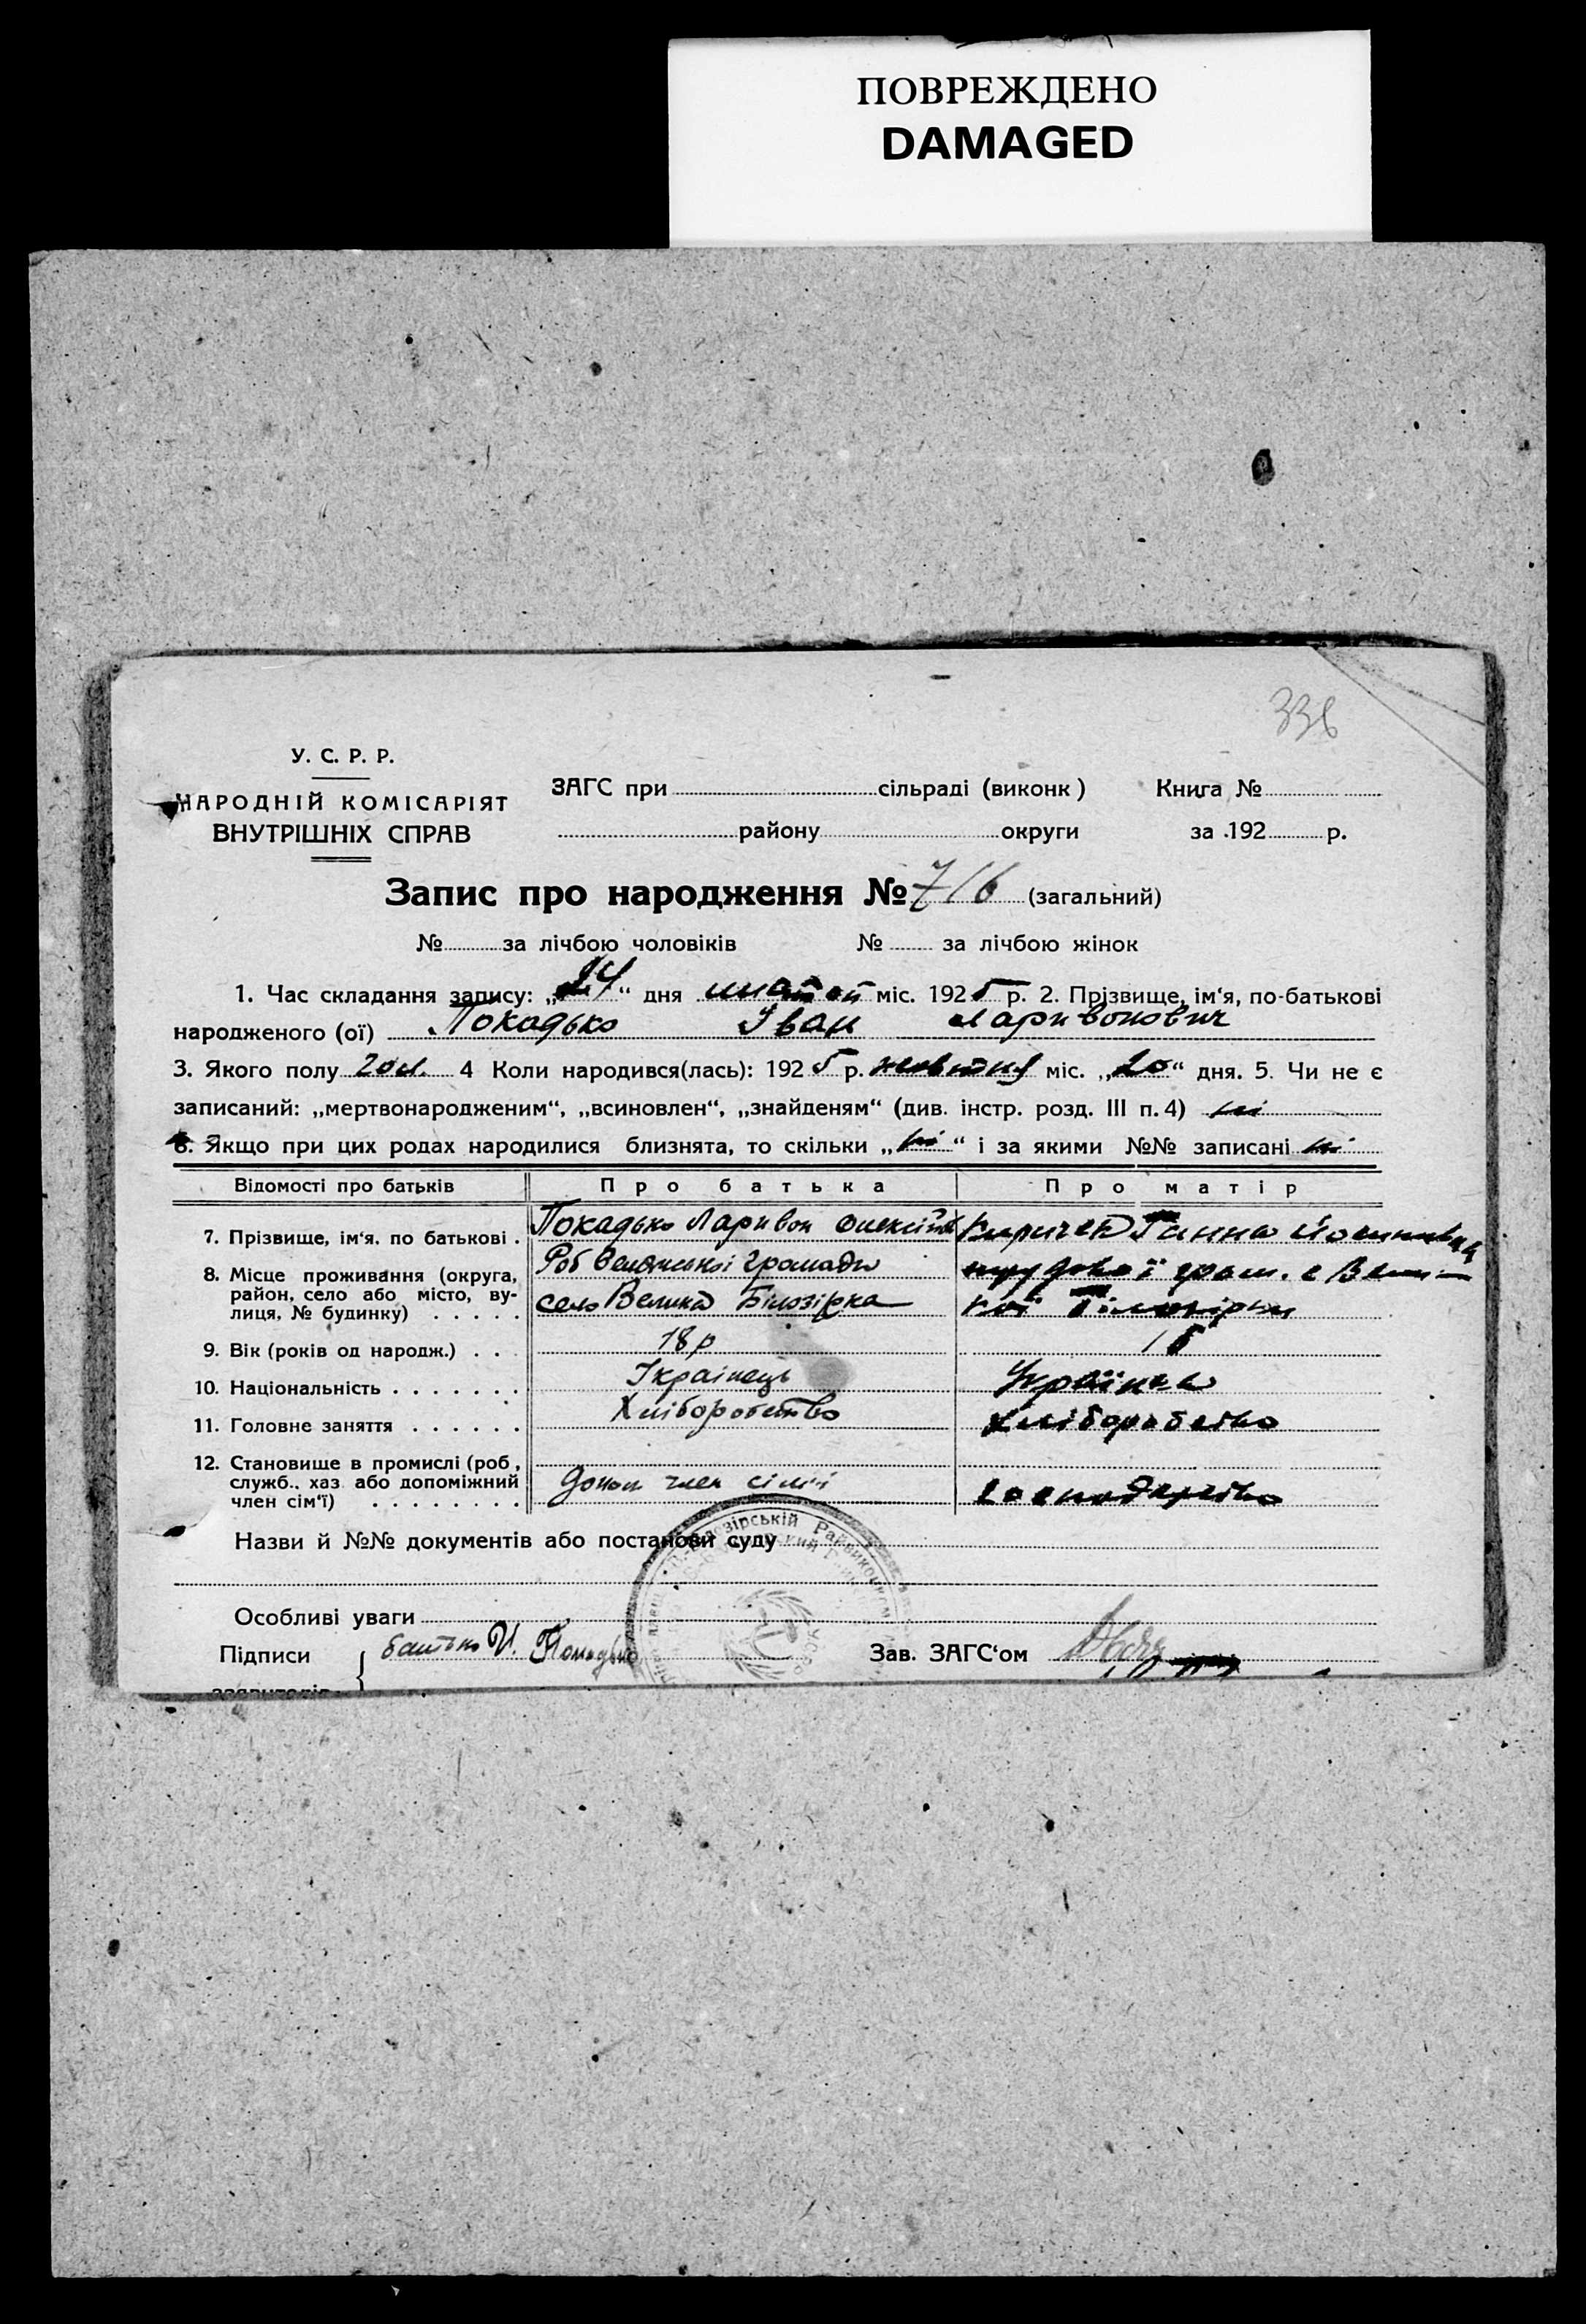 ПОВРЕЖДЕНО
DAMAGED
336
У. С. Р. Р.
НАРОДНІЙ КОМІСАРІЯТ
ВНУТРІШНІХ СПРАВ
ЗАГС при сільраді (виконк) Книга №
району округи за 192 р.
Запис про народження № 716 (загальний)
№ за лічбою чоловіків № за лічбою жінок
1. Час складання запису: „24“ дня міс. 1925 р. 2. Прізвище, ім‘я, по-батькові
народженого (ої) Покадько Іван Ларивонович
3. Якого полу чол. 4 Коли народився(лась): 1925 р. жовтня міс. „20“ дня. 5. Чи не є
записаний: „мертвонародженим“, „всиновлен“, „знайденям“ (див. інстр. розд. III п. 4) ні
6. Якщо при цих родах народилися близнята, то скільки „ні“ і за якими №№ записані ні
Відомості про батьків Про батька Про матір
7. Прізвище, ім‘я, по батькові . Покадько Ларивон Ганна
8. Місце проживання (округа, район, село або місто, вулиця, № будинку) . . . . . громади село Велика Білозірка трудової гром. с Вели-кої Білозірки
9. Вік (років од народж.) . . . 18 р
10. Національність . . . . . . . Українець Українка
11. Головне заняття . . . . . . Хліборобство Хліборобство
12. Становище в промислі (роб, служб., хаз або допоміжний член сім‘ї) . . . . . . . . допом член сімї
Назви й №№ документів або постанови суду
Особливі уваги
Підписи батько И. Покадько Зав. ЗАГС‘ом
заявителів